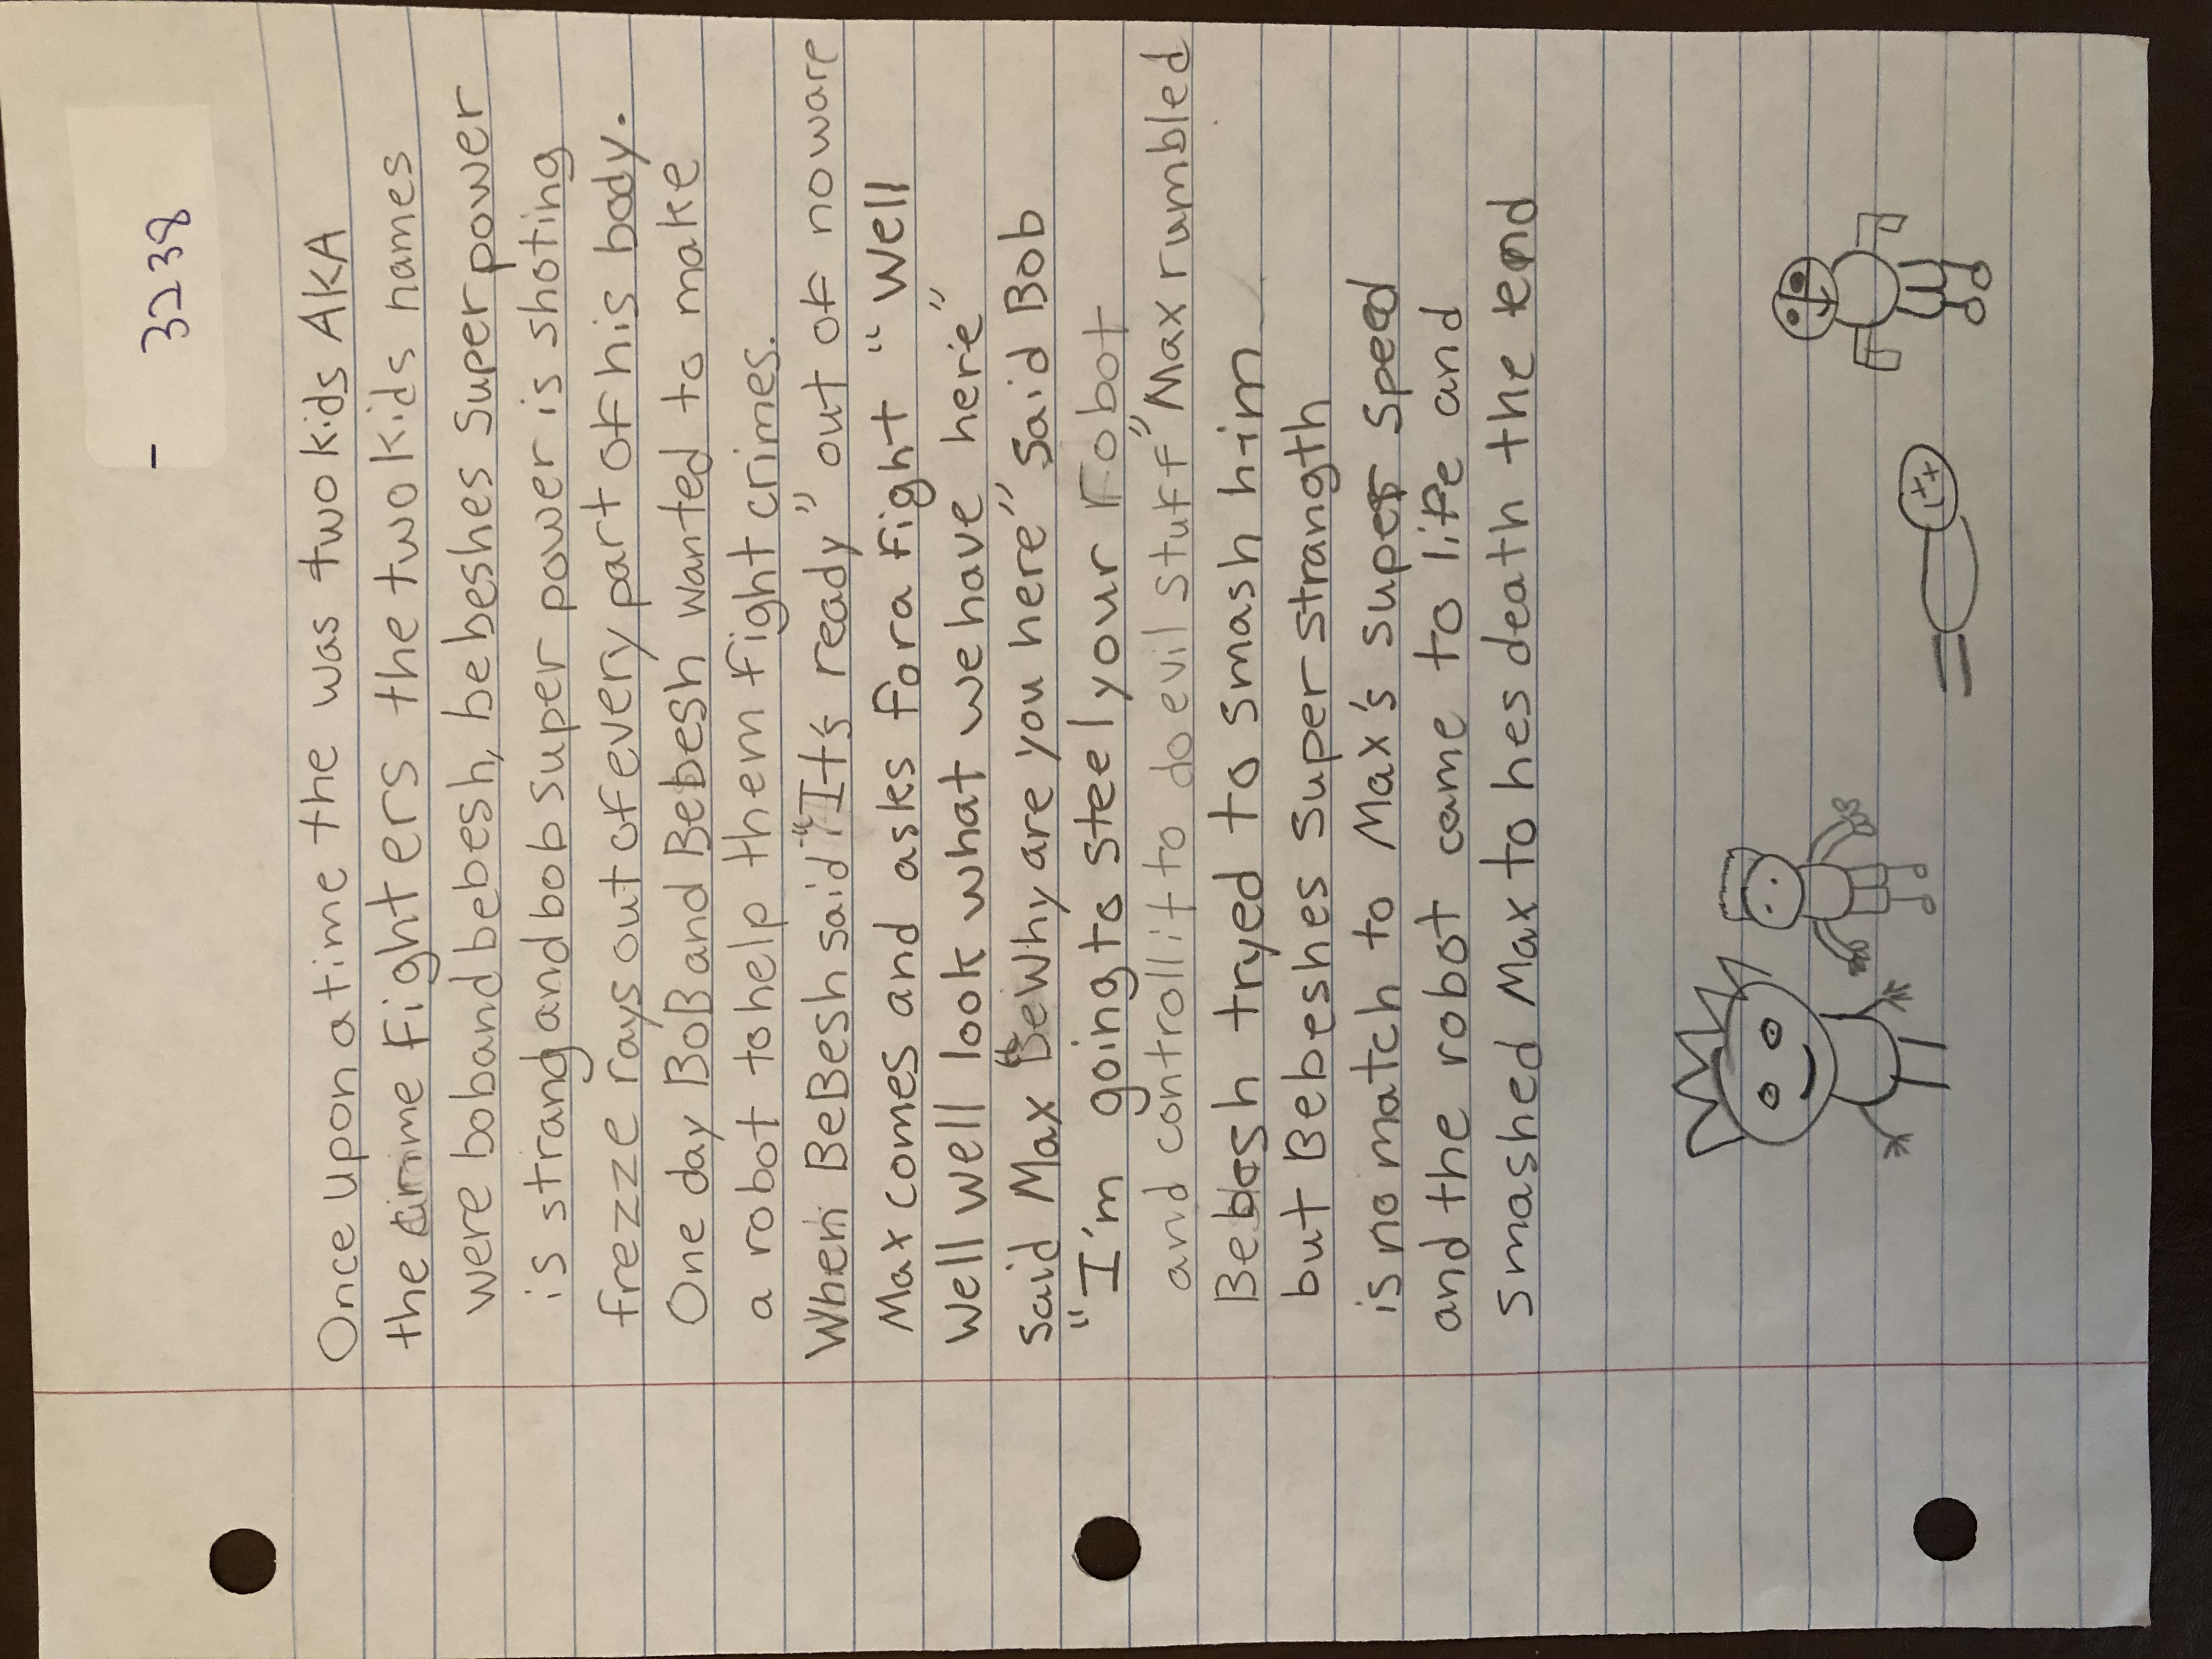 - 3238
Once upon a time the was two kids AKA
the crime fighters the two kids names
were bob and bebesh, bebeshes super power
is strang and bob super power is shoting
frezze rays out of every part of his body.
One day BoB and Bebesh wanted to make
a robot to help them fight crimes.
When BeBesh said "It's ready" out of noware
Max comes and asks for a fight "Well
Well well look what we have here"
said Max "Be Why are you here" said Bob
"I'm going to steel your robot
and controll it to do evil stuff" Max rumbled
Bebesh tryed to smash him
but Bebeshes super strangth
is no match to Max's super speed
and the robot came to life and
smashed Max to hes death the end